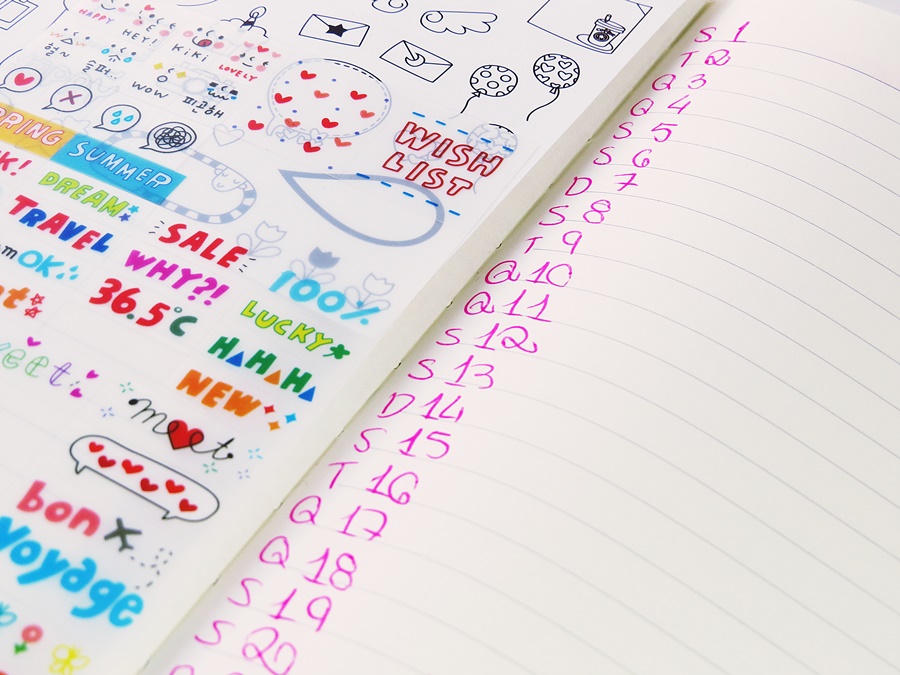 HAPPY
HEY!
KiKi
LOVELY
WOW
피곤해
WISH
LIST
SUMMER
DREAM
TRAVEL
SALE
OK
WHY?!
100%
36.5°C
LUCKY
HAHAHA
NEW
meet
bon
voyage
S 1
T 2
Q 3
Q 4
S 5
S 6
D 7
S 8
T 9
Q 10
Q 11
S 12
S 13
D 14
S 15
T 16
Q 17
Q 18
S 19
S 20